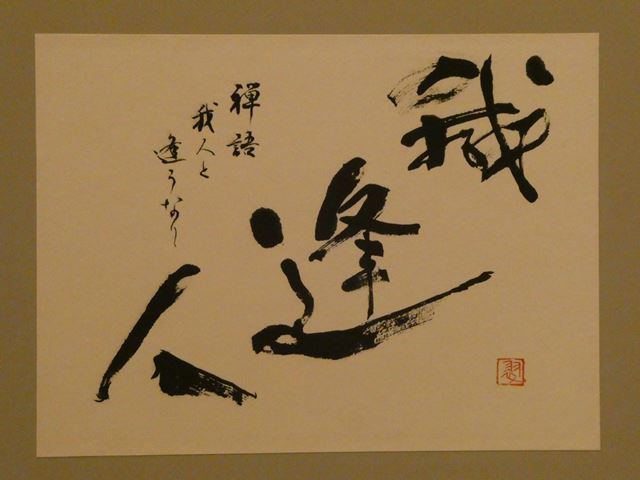 我逢人
禅語
我人と
逢うなり